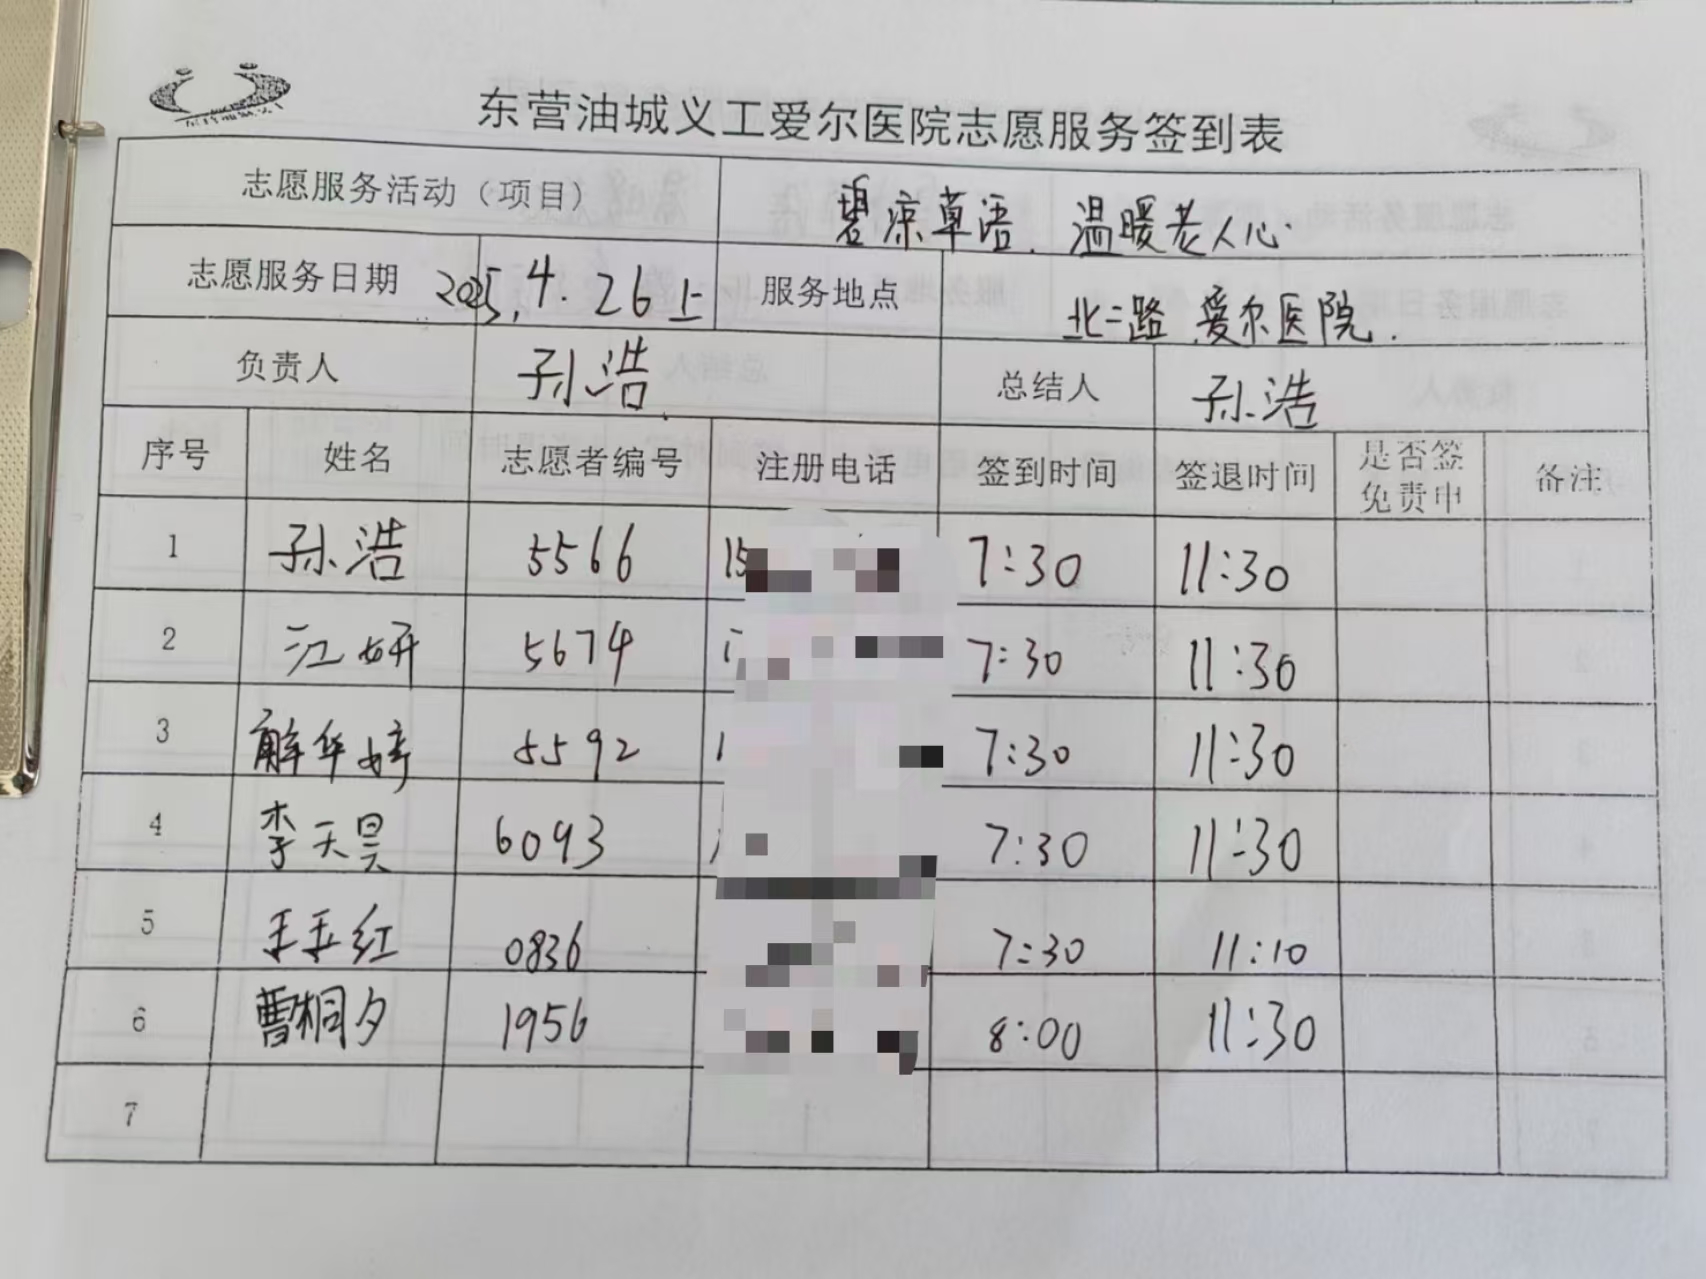 东营油城义工爱尔医院志愿服务签到表
志愿服务活动（项目） 碧凉草语、温暖老人心
志愿服务日期 2025.4.26上 服务地点 北二路 爱尔医院.
负责人 孙浩 总结人 孙浩
序号 姓名 志愿者编号 注册电话 签到时间 签退时间 是否签免责申 备注
1 孙浩 5566 15 7:30 11:30
2 江妍 5674 7:30 11:30
3 解华婷 5592 7:30 11:30
4 李天昊 6093 7:30 11:30
5 王玉红 0836 7:30 11:10
6 曹桐夕 1956 8:00 11:30
7